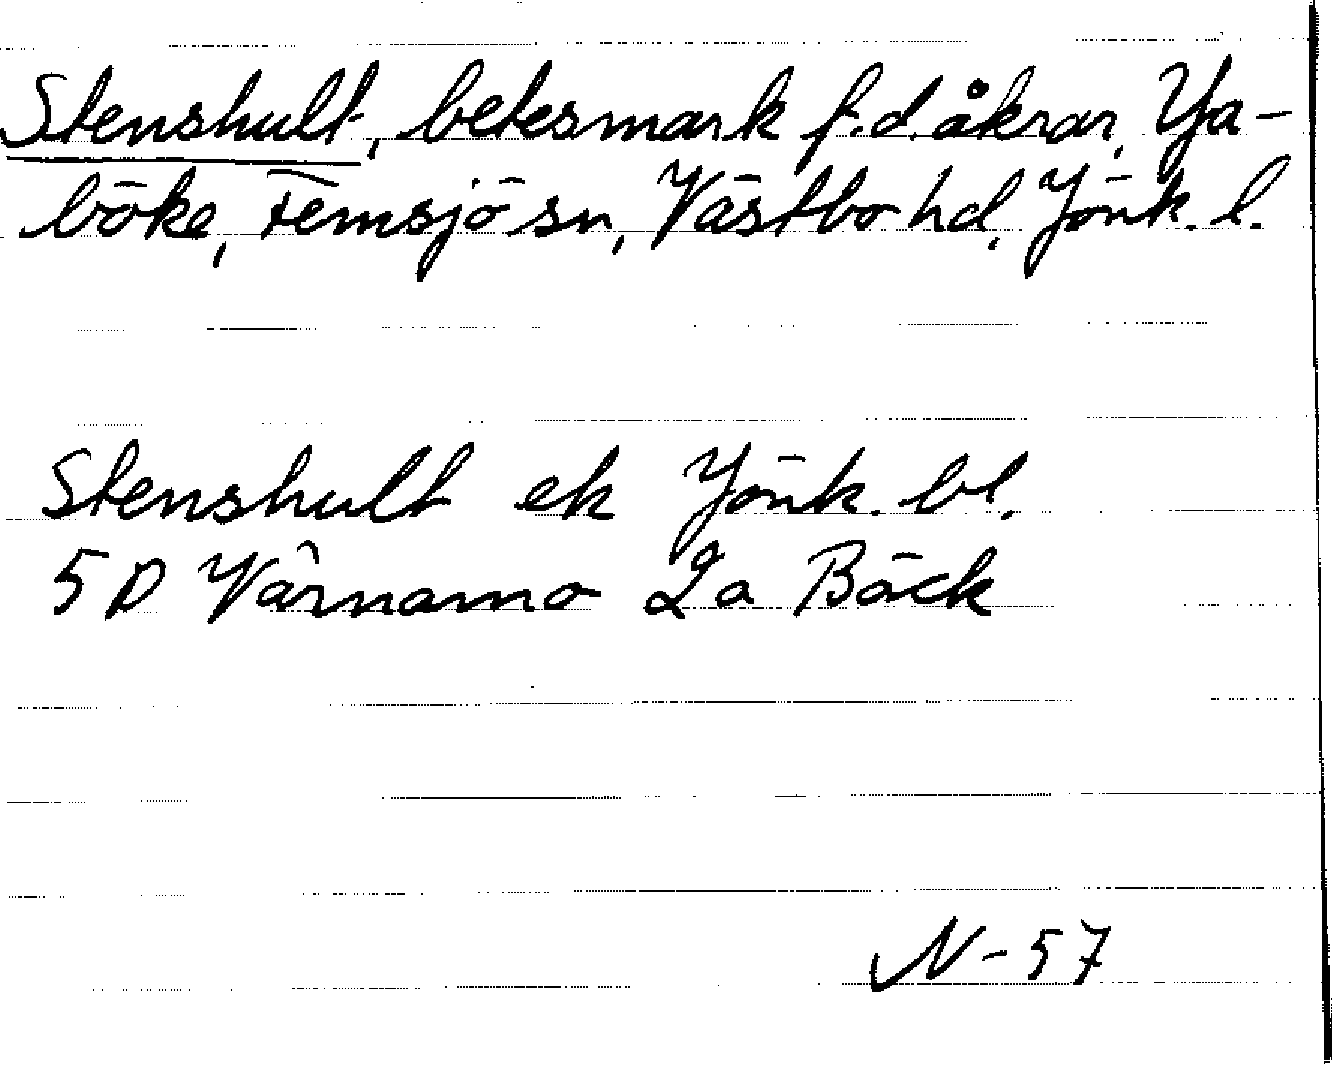 Stenshult, betesmark f.d. åkrar, Ya-
böke, Femsjö sn, Västbo hd, Jönk. l.
Stenshult ek Jönk. bl.
5 D Värnamo La Bäck
N-57